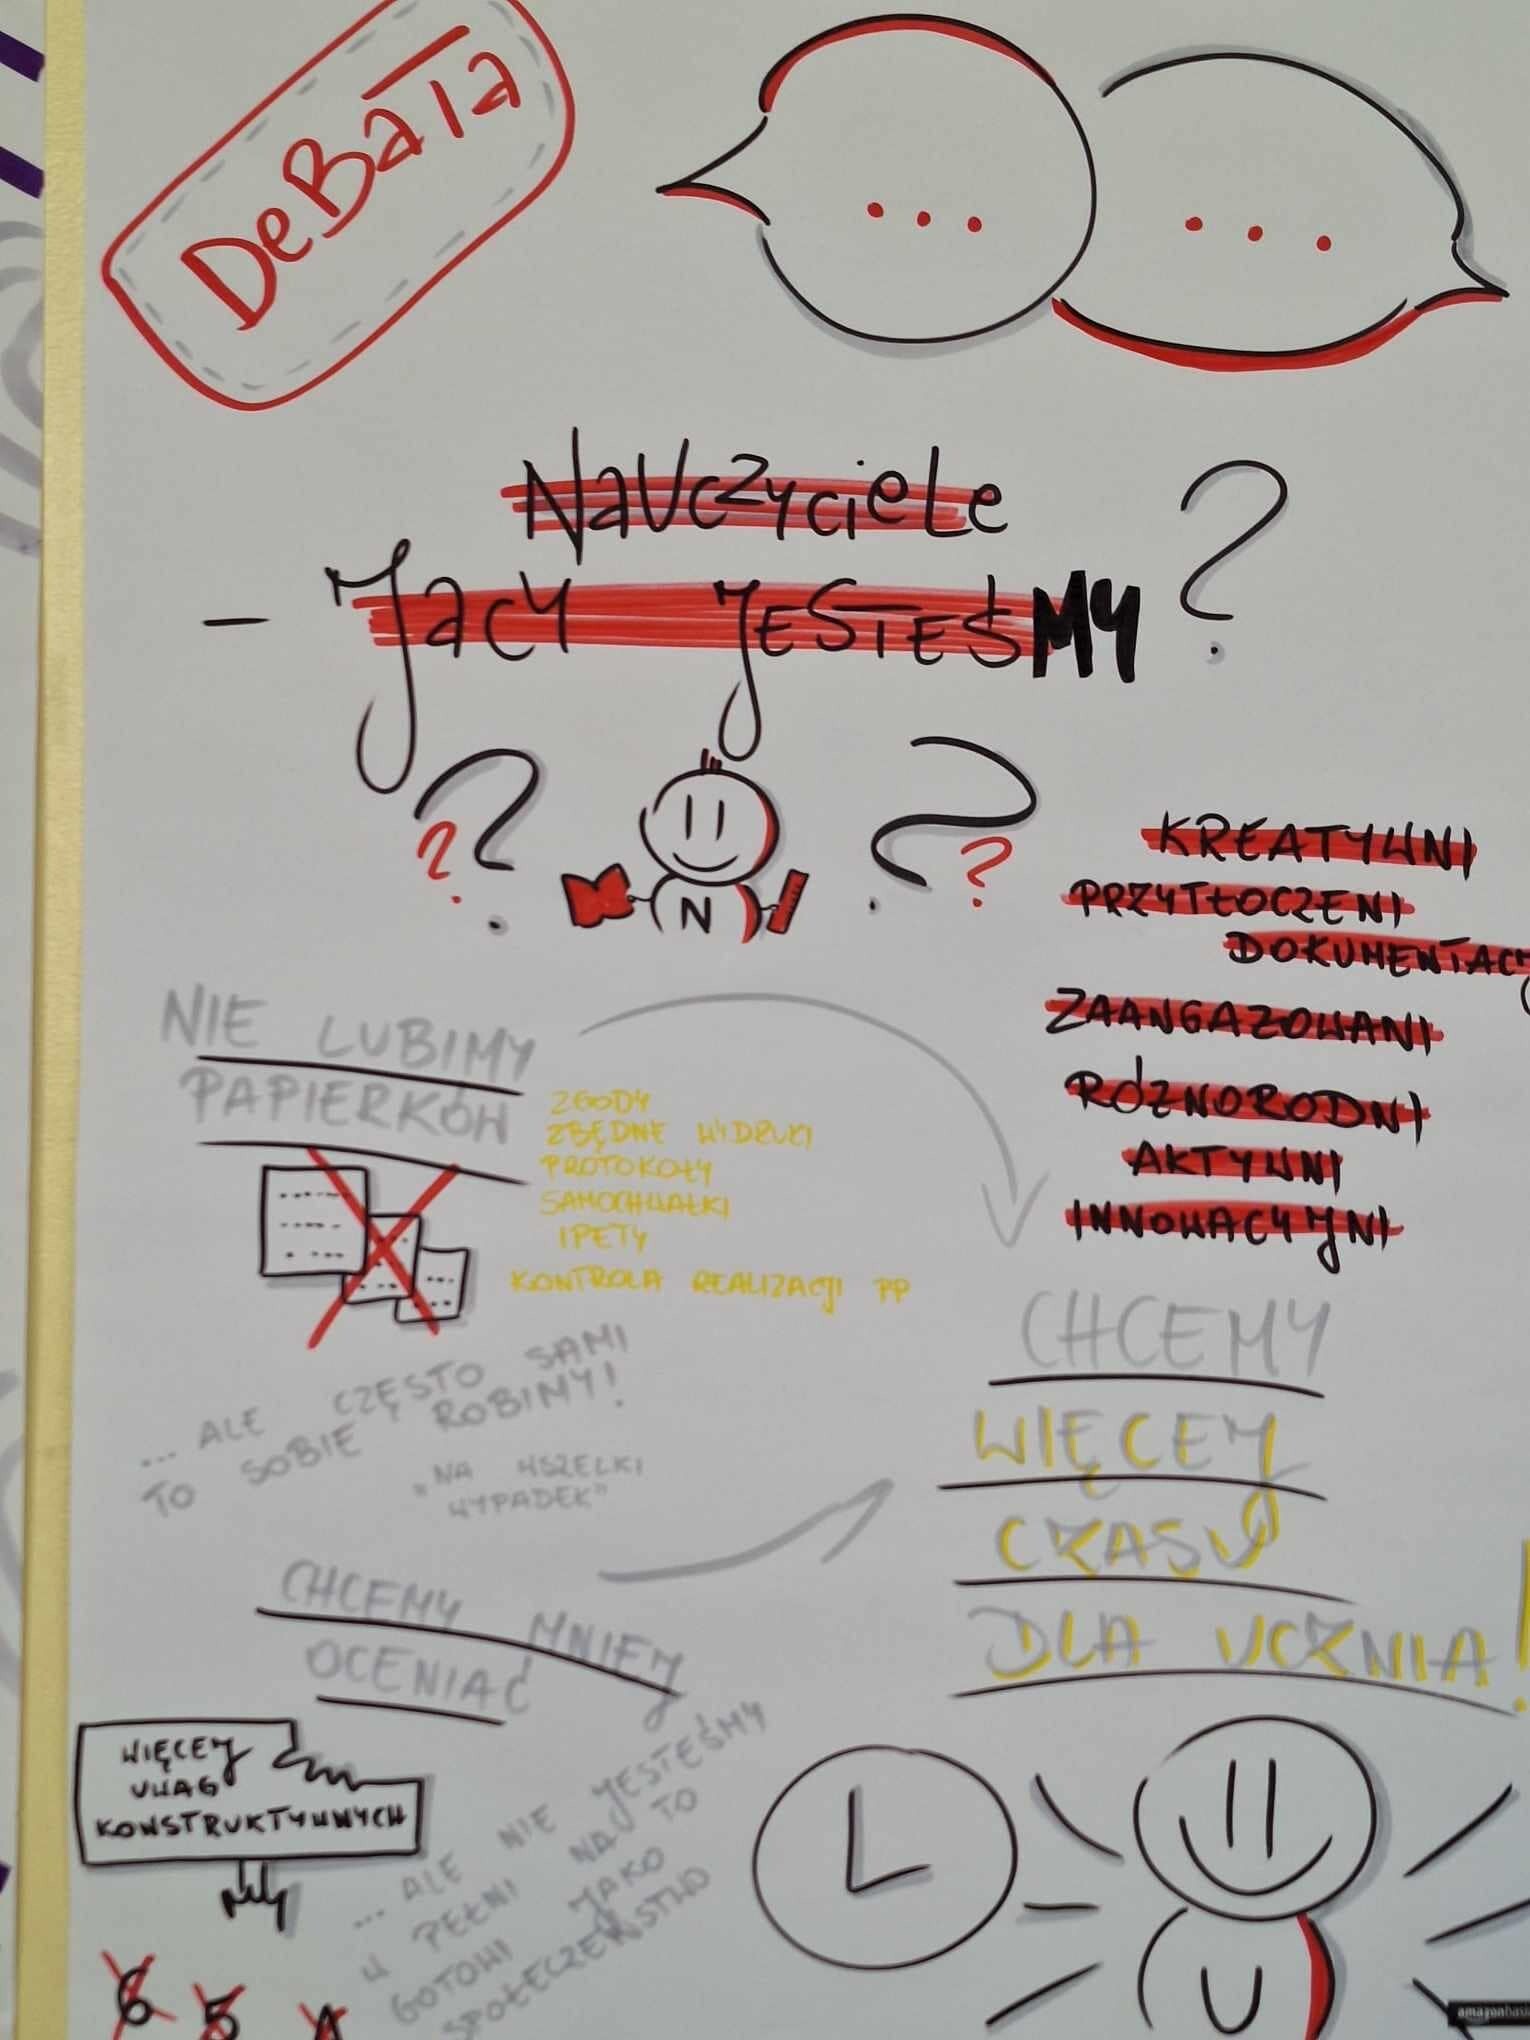 DeBaTa
... ...
NaUczyciele
- Jacy JESTEŚMY ?
? ? ? ?
N
KREATYWNI
PRZYTŁOCZENI
DOKUMENTACJ
ZAANGAZOWANI
RÓZNORODNI
AKTYWNI
INNOWACYJNI
NIE LUBIMY
PAPIERKÓW
ZGODY
ZBĘDNE WYDRUKI
PROTOKOŁY
SAMOCHWAŁKI
IPETY
KONTROLA REALIZACJI PP
... ALE CZĘSTO SAMI
TO SOBIE ROBIMY!
"NA WSZELKI
WYPADEK"
CHCEMY
WIĘCEJ
CZASU
DLA UCZNIA!
CHCEMY MNIEJ
OCENIAĆ
WIĘCEJ
UWAG
KONSTRUKTYWNYCH
... ALE NIE JESTEŚMY
W PEŁNI NA TO
GOTOWI JAKO
SPOŁECZEŃSTWO
6 5 4
U
amazonbasi